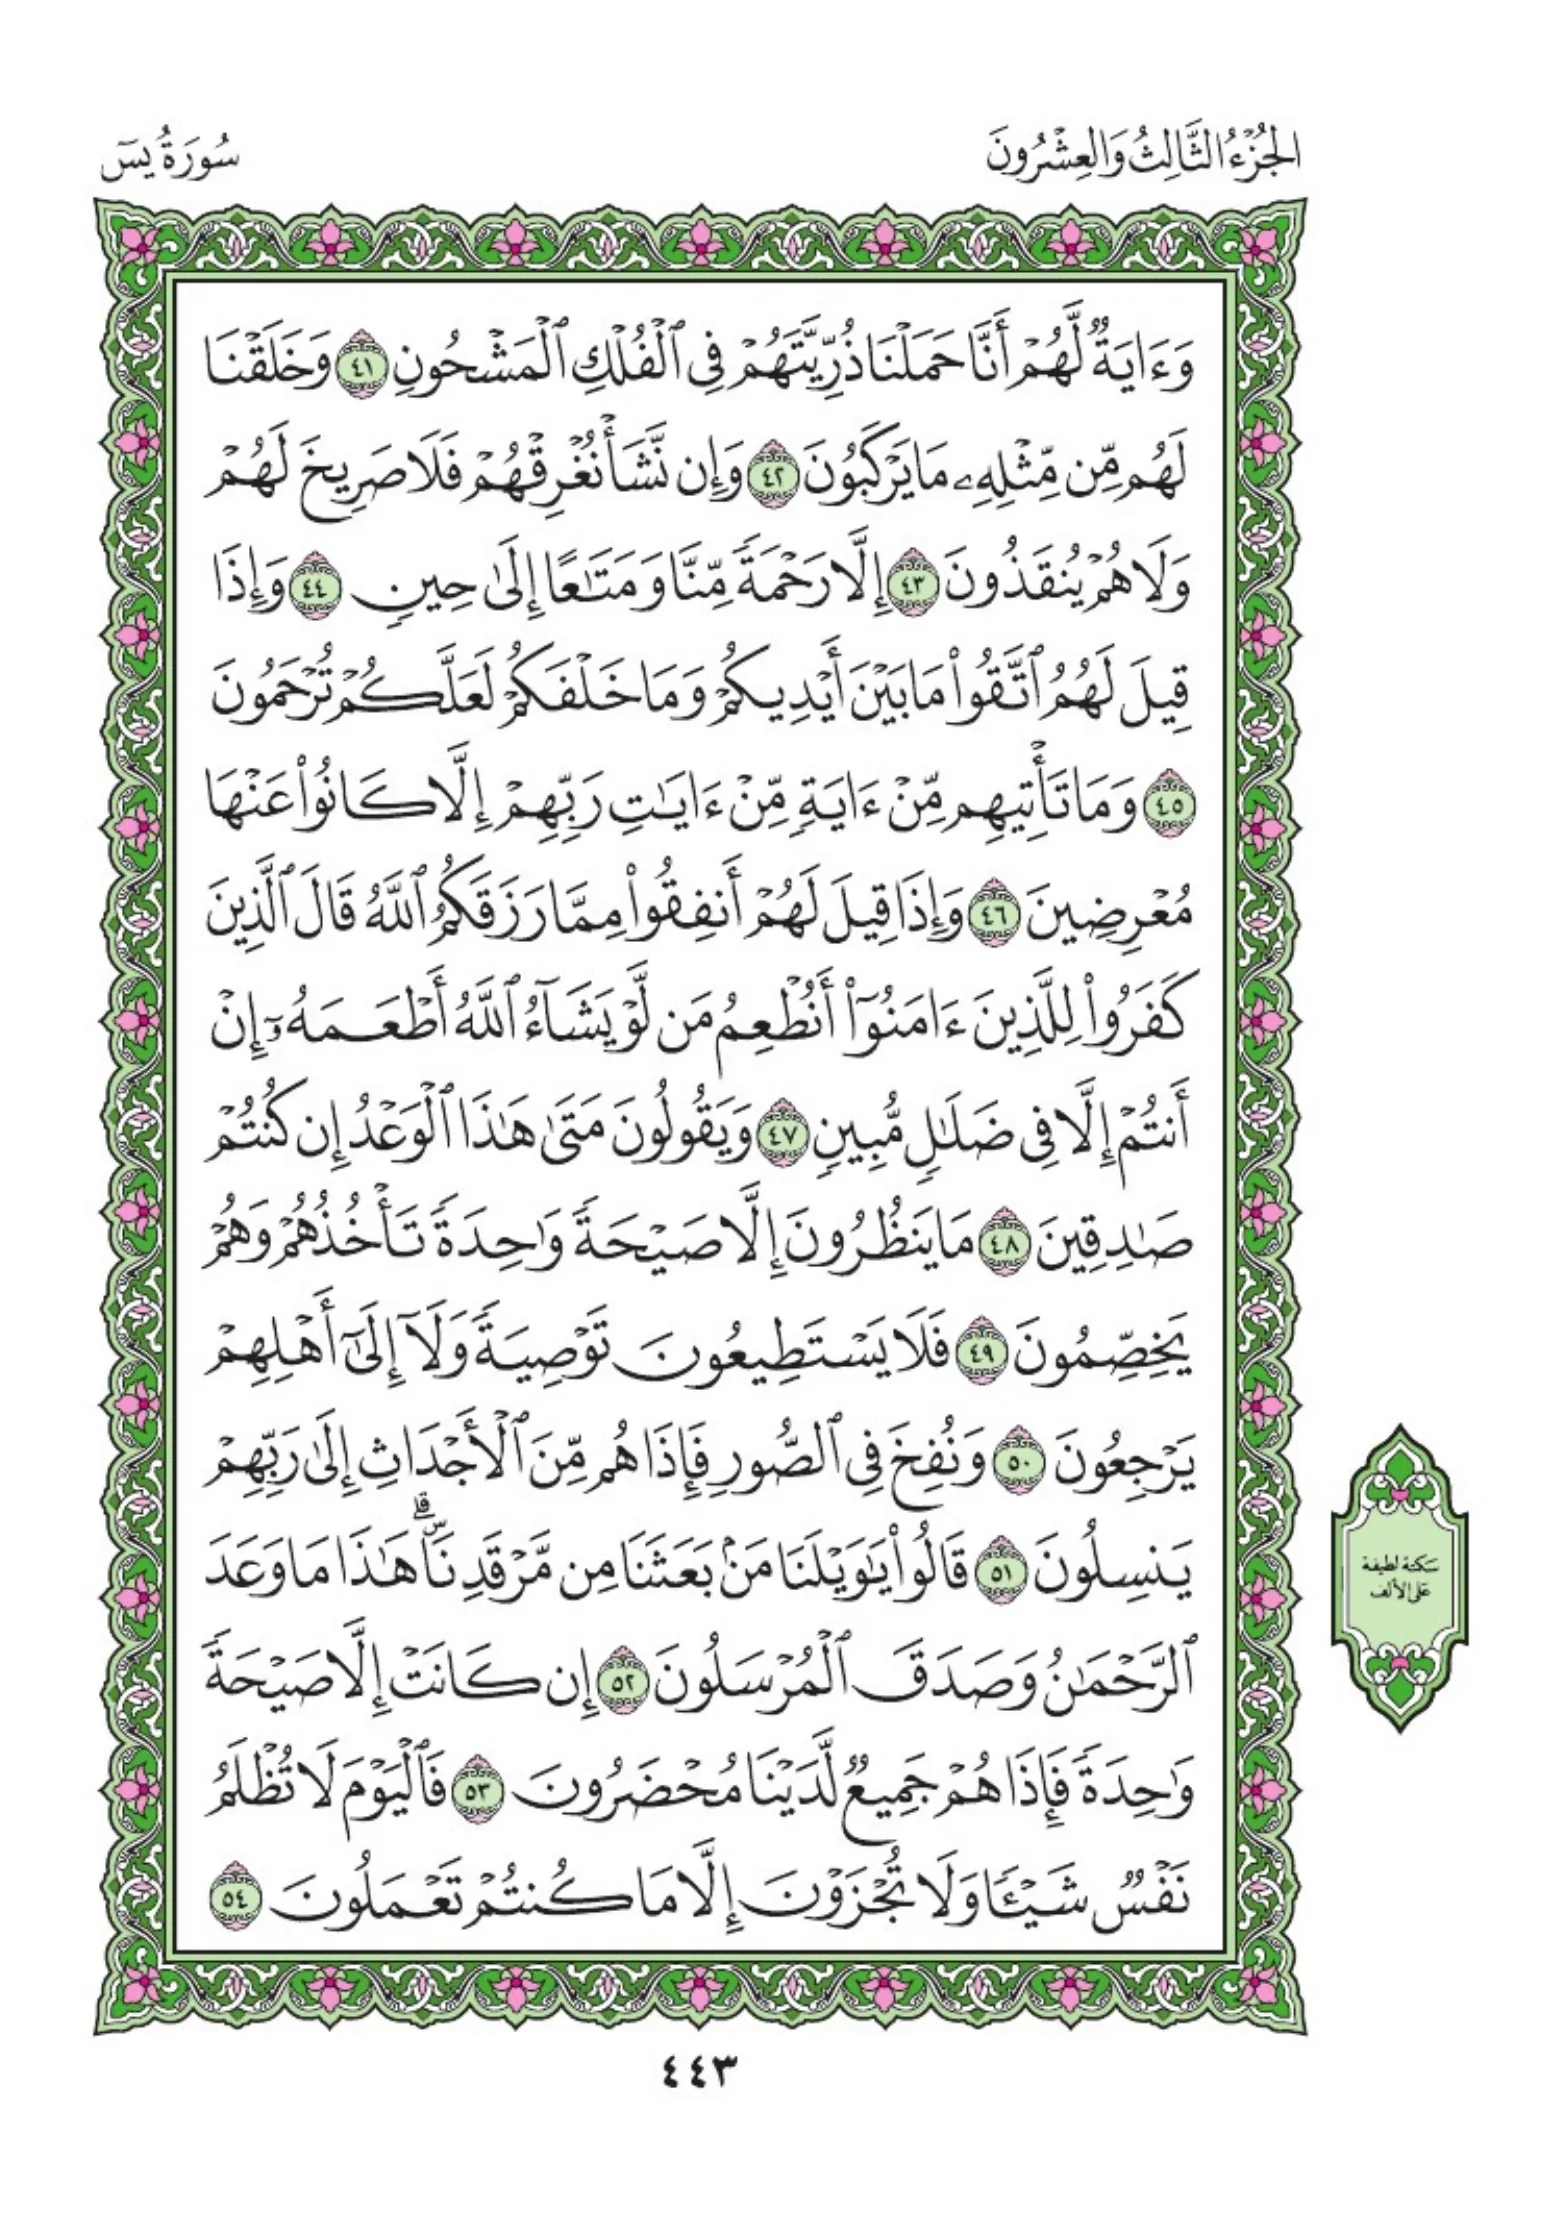 الجُزْءُ الثَّالِثُ وَالعِشْرُونَ
سُورَةُ يسٓ
وَءَايَةٞ لَّهُمۡ أَنَّا حَمَلۡنَا ذُرِّيَّتَهُمۡ فِي ٱلۡفُلۡكِ ٱلۡمَشۡحُونِ ٤١ وَخَلَقۡنَا
لَهُم مِّن مِّثۡلِهِۦ مَا يَرۡكَبُونَ ٤٢ وَإِن نَّشَأۡ نُغۡرِقۡهُمۡ فَلَا صَرِيخَ لَهُمۡ
وَلَا هُمۡ يُنقَذُونَ ٤٣ إِلَّا رَحۡمَةٗ مِّنَّا وَمَتَٰعًا إِلَىٰ حِينٖ ٤٤ وَإِذَا
قِيلَ لَهُمُ ٱتَّقُواْ مَا بَيۡنَ أَيۡدِيكُمۡ وَمَا خَلۡفَكُمۡ لَعَلَّكُمۡ تُرۡحَمُونَ
٤٥ وَمَا تَأۡتِيهِم مِّنۡ ءَايَةٖ مِّنۡ ءَايَٰتِ رَبِّهِمۡ إِلَّا كَانُواْ عَنۡهَا
مُعۡرِضِينَ ٤٦ وَإِذَا قِيلَ لَهُمۡ أَنفِقُواْ مِمَّا رَزَقَكُمُ ٱللَّهُ قَالَ ٱلَّذِينَ
كَفَرُواْ لِلَّذِينَ ءَامَنُوٓاْ أَنُطۡعِمُ مَن لَّوۡ يَشَآءُ ٱللَّهُ أَطۡعَمَهُۥٓ إِنۡ
أَنتُمۡ إِلَّا فِي ضَلَٰلٖ مُّبِينٖ ٤٧ وَيَقُولُونَ مَتَىٰ هَٰذَا ٱلۡوَعۡدُ إِن كُنتُمۡ
صَٰدِقِينَ ٤٨ مَا يَنظُرُونَ إِلَّا صَيۡحَةٗ وَٰحِدَةٗ تَأۡخُذُهُمۡ وَهُمۡ
يَخِصِّمُونَ ٤٩ فَلَا يَسۡتَطِيعُونَ تَوۡصِيَةٗ وَلَآ إِلَىٰٓ أَهۡلِهِمۡ
يَرۡجِعُونَ ٥٠ وَنُفِخَ فِي ٱلصُّورِ فَإِذَا هُم مِّنَ ٱلۡأَجۡدَاثِ إِلَىٰ رَبِّهِمۡ
يَنسِلُونَ ٥١ قَالُواْ يَٰوَيۡلَنَا مَنۢ بَعَثَنَا مِن مَّرۡقَدِنَاۜۗ هَٰذَا مَا وَعَدَ
ٱلرَّحۡمَٰنُ وَصَدَقَ ٱلۡمُرۡسَلُونَ ٥٢ إِن كَانَتۡ إِلَّا صَيۡحَةٗ
وَٰحِدَةٗ فَإِذَا هُمۡ جَمِيعٞ لَّدَيۡنَا مُحۡضَرُونَ ٥٣ فَٱلۡيَوۡمَ لَا تُظۡلَمُ
نَفۡسٞ شَيۡـٔٗا وَلَا تُجۡزَوۡنَ إِلَّا مَا كُنتُمۡ تَعۡمَلُونَ ٥٤
سَكتة لطيفة
عَلى الألف
٤٤٣